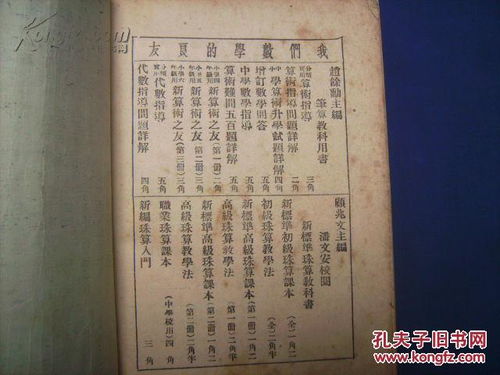 我們數學的良友
趙餘勳主編
筆算教科用書
分類實用 算術指導 三角
算術指導問題詳解 二角
小學算術升學試題詳解 四角
增訂數學問答 五角
中學數學指導 五角
算術難問五百題詳解 五角
小學四年級用 新算術之友(第一册)二角
小學五年級用 新算術之友(第二册)三角
小學六年級用 新算術之友(第三册)三角
分類實用 代數指導 五角
代數指導問題詳解 四角
顧兆文主編
潘文安校閱
新標準珠算教科書
新標準初級珠算課本(全)一角二
初級珠算教學法(全)二角半
新標準高級珠算課本(第一册)一角二
高級珠算教學法(第一册)二角半
新標準高級珠算課本(第二册)一角二
高級珠算教學法(第二册)二角半
職業珠算課本(中學校用)四角
新編珠算入門 三角
孔夫子旧书网
www.kongfz.com
孔夫子旧书网
www.kongfz.com